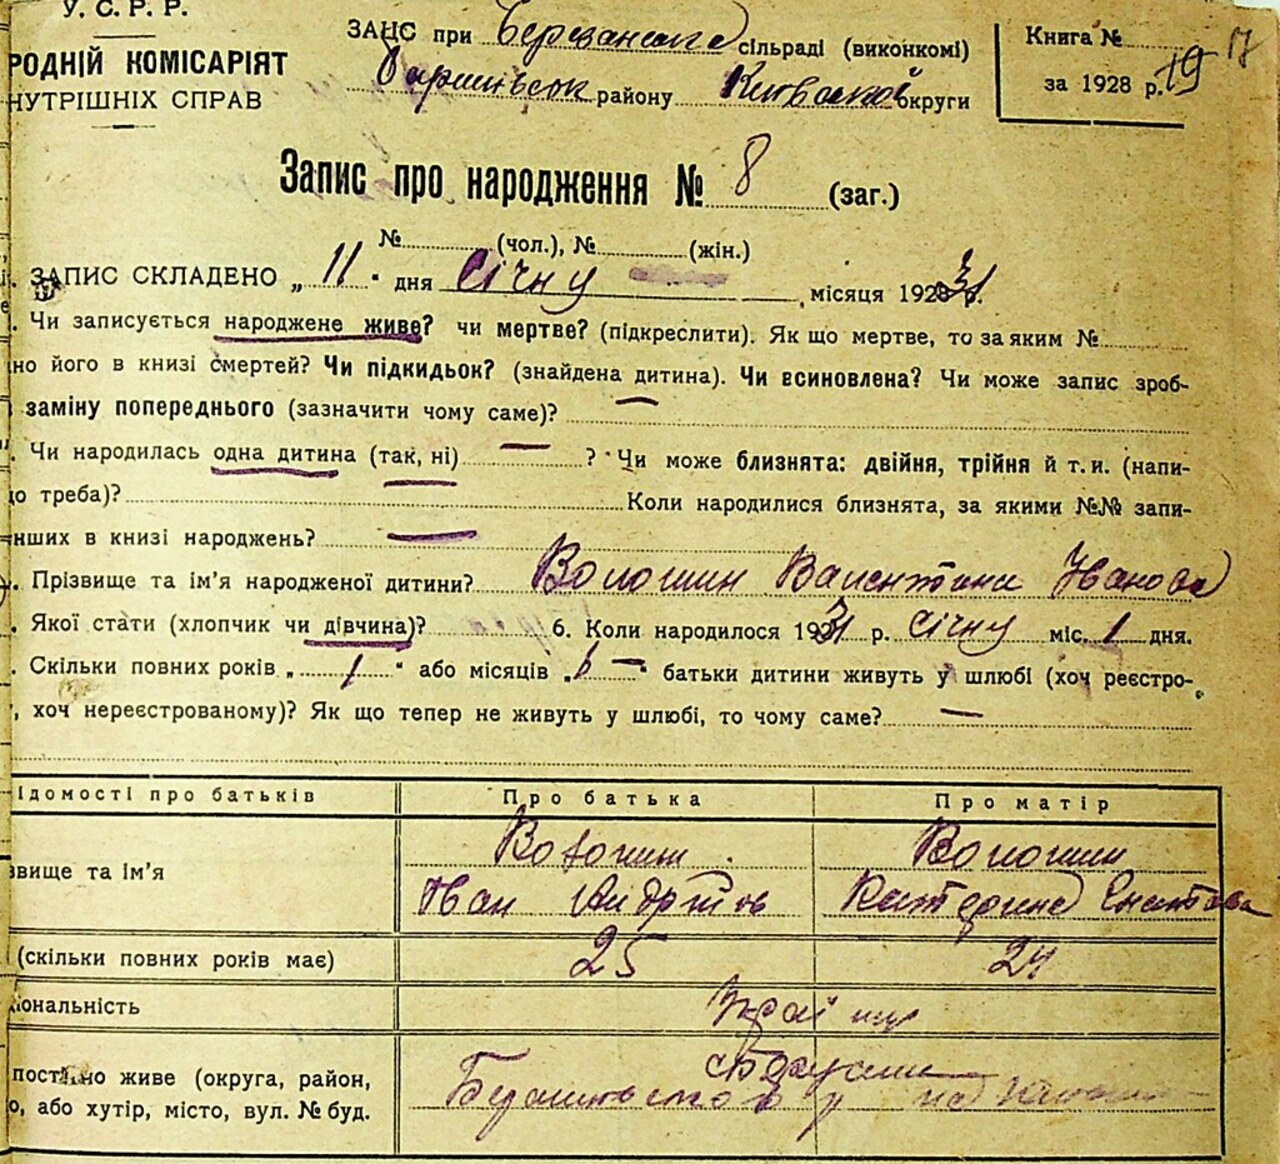 У. С. Р. Р.
РОДНІЙ КОМІСАРІЯТ
НУТРІШНІХ СПРАВ
ЗАЦС при Березанська сільраді (виконкомі)
Баришівськ району Київської округи
Книга № 17
за 1928 р. 19
Запис про народження № 8 (заг.)
№ (чол.), № (жін.)
ЗАПИС СКЛАДЕНО „ 11 “ дня Січну місяця 192831 р.
Чи записується народжене живе? чи мертве? (підкреслити). Як що мертве, то за яким №
но його в книзі смертей? Чи підкидьок? (знайдена дитина). Чи всиновлена? Чи може запис зроб-
заміну попереднього (зазначити чому саме)? —
Чи народилась одна дитина (так, ні) — ? Чи може близнята: двійня, трійня й т. и. (напи-
о треба)? — Коли народилися близнята, за якими №№ запи-
нших в книзі народжень? —
Прізвище та ім'я народженої дитини? Волошин Валентина Іванова
Якої стати (хлопчик чи дівчина)? 6. Коли народилося 1931 р. січну міс. 1 дня.
Скільки повних років „ 1 “ або місяців „ — “ батьки дитини живуть у шлюбі (хоч реєстро-
, хоч нереєстрованому)? Як що тепер не живуть у шлюбі, то чому саме? —
ідомості про батьків Про батька Про матір
звище та ім'я Волошин Волошин
Іван Андріїв Катерина Гнатова
(скільки повних років має) 25 24
іональність Україн
постійно живе (округа, район,
о, або хутір, місто, вул. № буд.